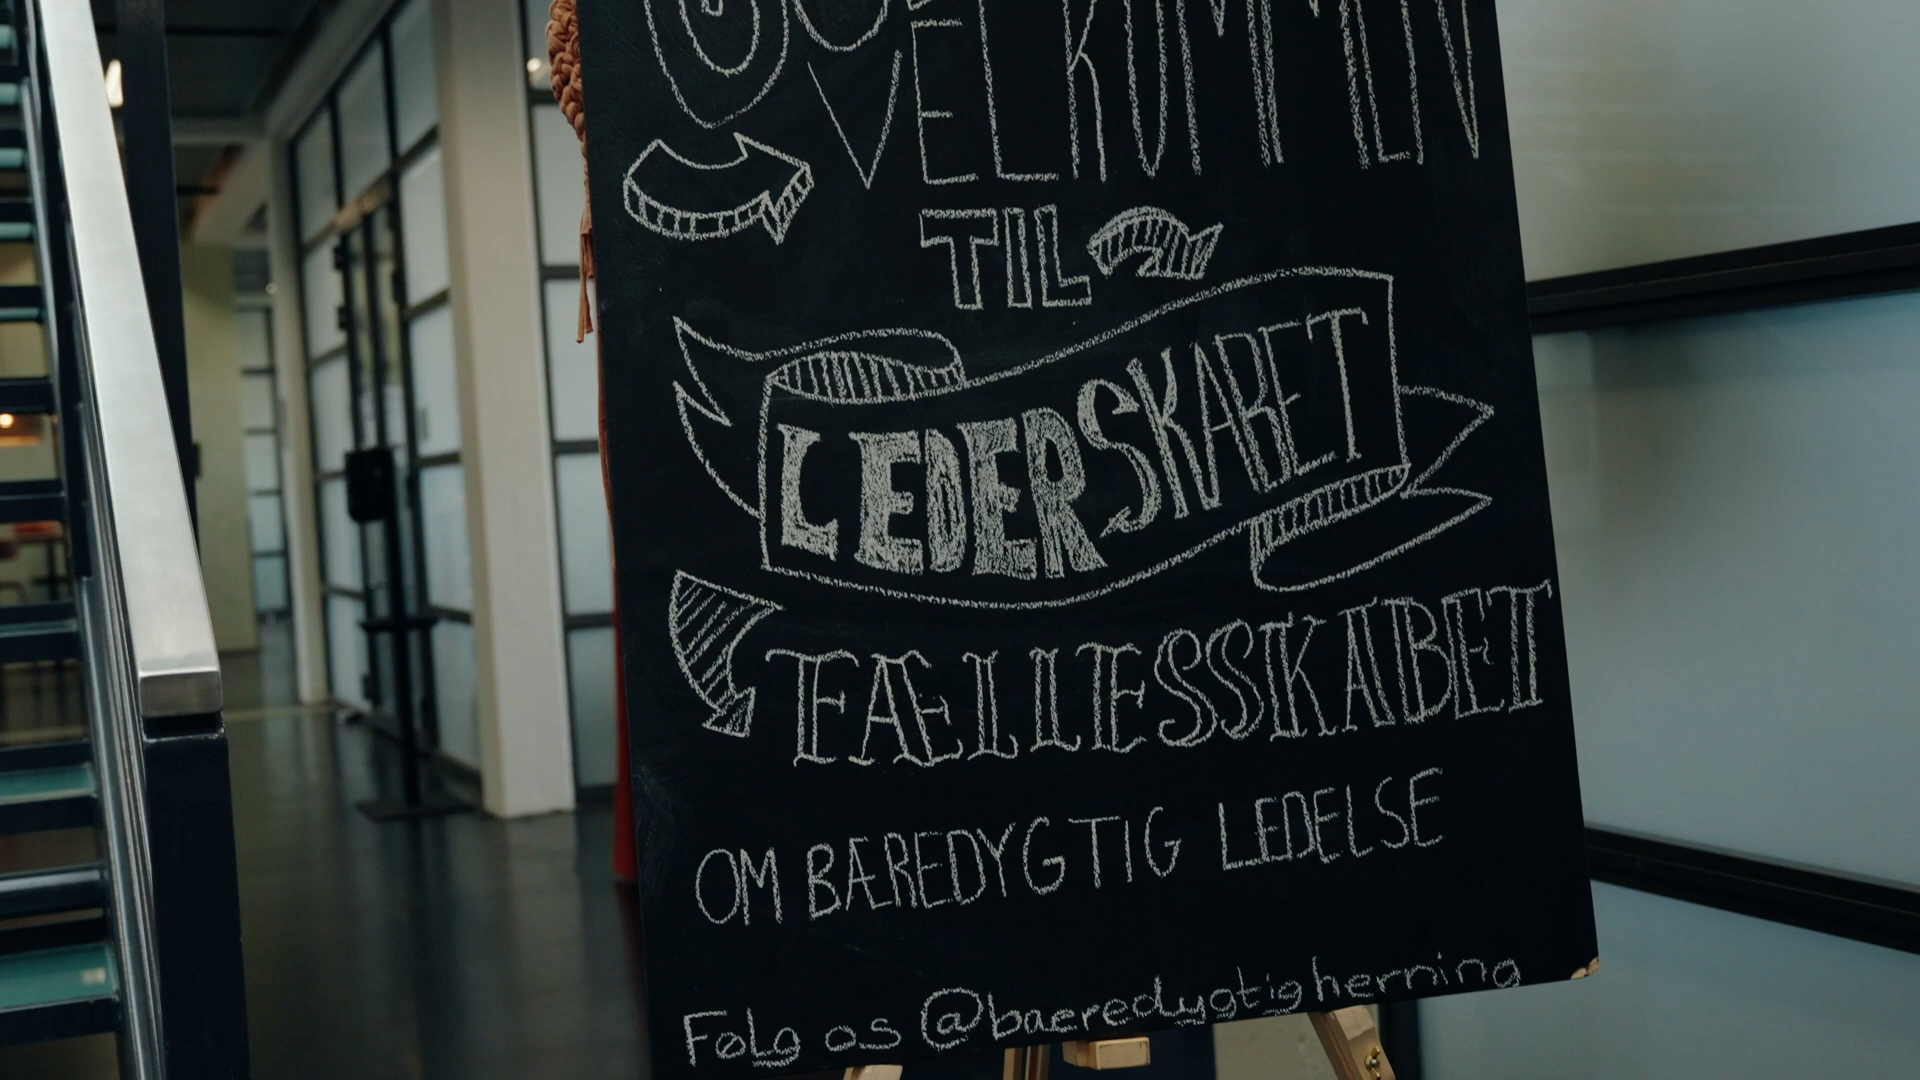 VELKOMMEN
TIL
LEDERSKABET
FÆLLESSKABET
OM BÆREDYGTIG LEDELSE
Følg os @baeredygtigherning